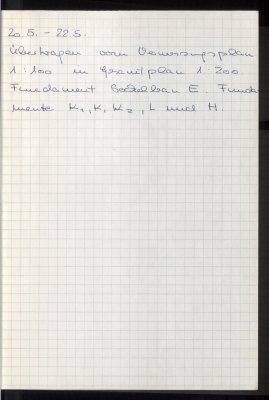 20.5. - 22.5.
Übertragen vom Vermessungsplan
1:100 in Gesamtplan 1:200.
Fundament E. Funda
mente K1, K, K2, L und H.